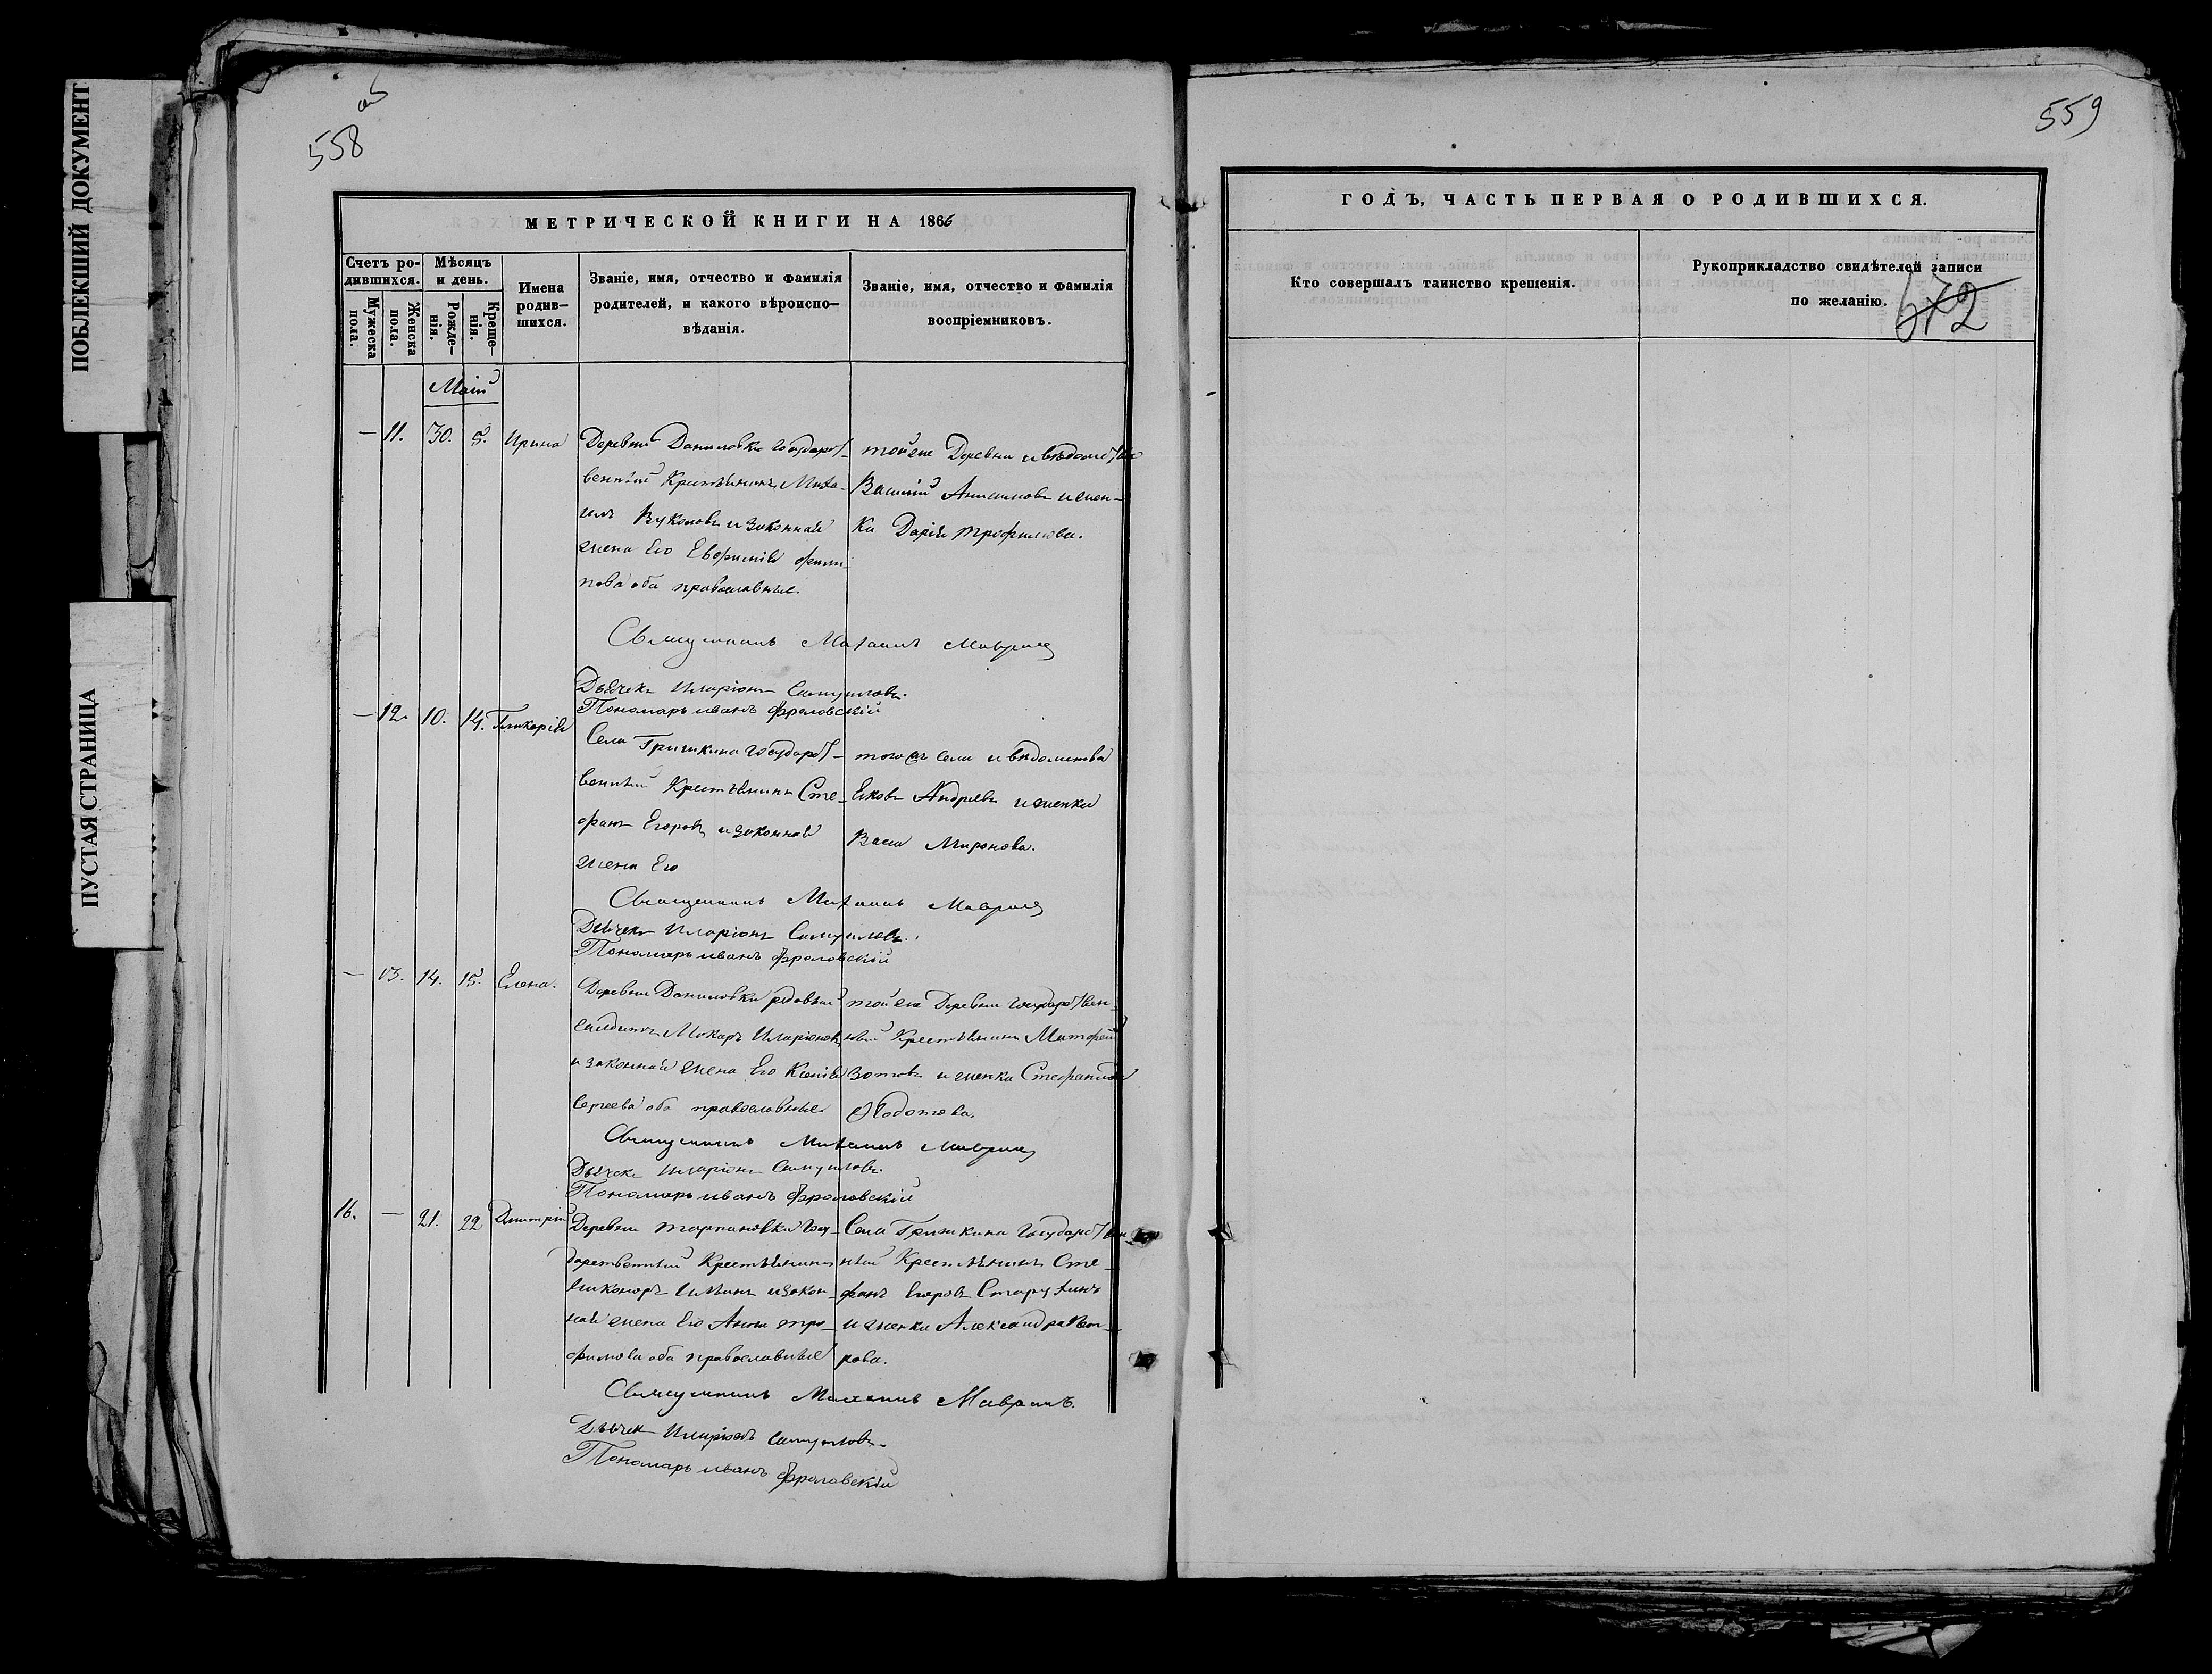 ПОБЛЕКШИЙ ДОКУМЕНТ
ПУСТАЯ СТРАНИЦА
558 об
МЕТРИЧЕСКОЙ КНИГИ НА 1866
Счетъ ро-
дившихся.
Мужеска
пола.
Женска
пола.
Мѣсяцъ
и день.
Рожде-
нія.
Креще-
нія.
Имена
родив-
шихся.
Званіе, имя, отчество и фамилія
родителей, и какого вѣроиспо-
вѣданія.
Званіе, имя, отчество и фамилія
воспріемниковъ.
Маій
— 11. 30. 5. Ирина
Деревни Даниловки государст-
венный Крестьянинъ Миха-
илъ Вуколовъ и законная
жена Его Евфимія Фили-
пова оба православные.
тойже Деревни и вѣдомства
Василий Анисимовъ и жен-
ка Дарія Трофимова.
Священникъ Михаилъ Мавринъ
Дьячекъ Иларіонъ Самуиловъ.
Пономарь Иванъ Фроловскій
— 12. 10. 14. Гликерія
Села Гришкина государст-
венный Крестьянинъ Сте-
фанъ Егоровъ и законная
жена Его
тогожъ села и вѣдомства
Яковъ Андреевъ и женка
Васса Миронова.
Священникъ Михаилъ Мавринъ
Дьячекъ Иларіонъ Самуиловъ.
Пономарь Иванъ Фроловскій
— 13. 14. 15. Елена.
Деревни Даниловки рядовый
солдатъ Макаръ Иларіоновъ
и законная жена Его Ксенія
Сергеева оба православные
тойже Деревни государствен-
ный Крестьянинъ Матфей
Зотовъ и женка Стефанида
Федотова.
Священникъ Михаилъ Мавринъ
Дьячекъ Иларіонъ Самуиловъ.
Пономарь Иванъ Фроловскій
16. — 21. 22 Димитрій
Деревни Тарпановки Госу-
дарственный Крестьянинъ
Никаноръ Ильинъ и закон-
ная жена Его Анна Тро-
фимова оба православные
Села Гришкина государствен-
ный Крестьянинъ Сте-
фанъ Егоровъ Старухинъ
и женка Александра Пет-
рова.
Священникъ Михаилъ Мавринъ.
Дьячекъ Иларіонъ Самуиловъ.
Пономарь Иванъ Фроловскій
559
ГОДЪ, ЧАСТЬ ПЕРВАЯ О РОДИВШИХСЯ.
Кто совершалъ таинство крещенія.
Рукоприкладство свидѣтелей записи
по желанію.
672